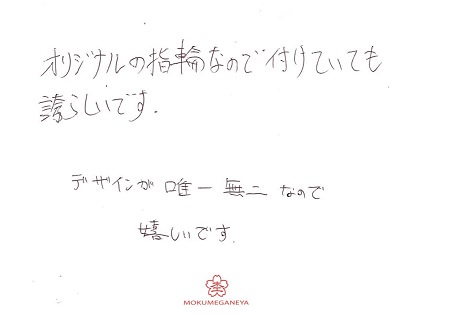 オリジナルの指輪なので付けていても
誇らしいです.
デザインが唯一無二なので
嬉しいです.
MOKUMEGANEYA